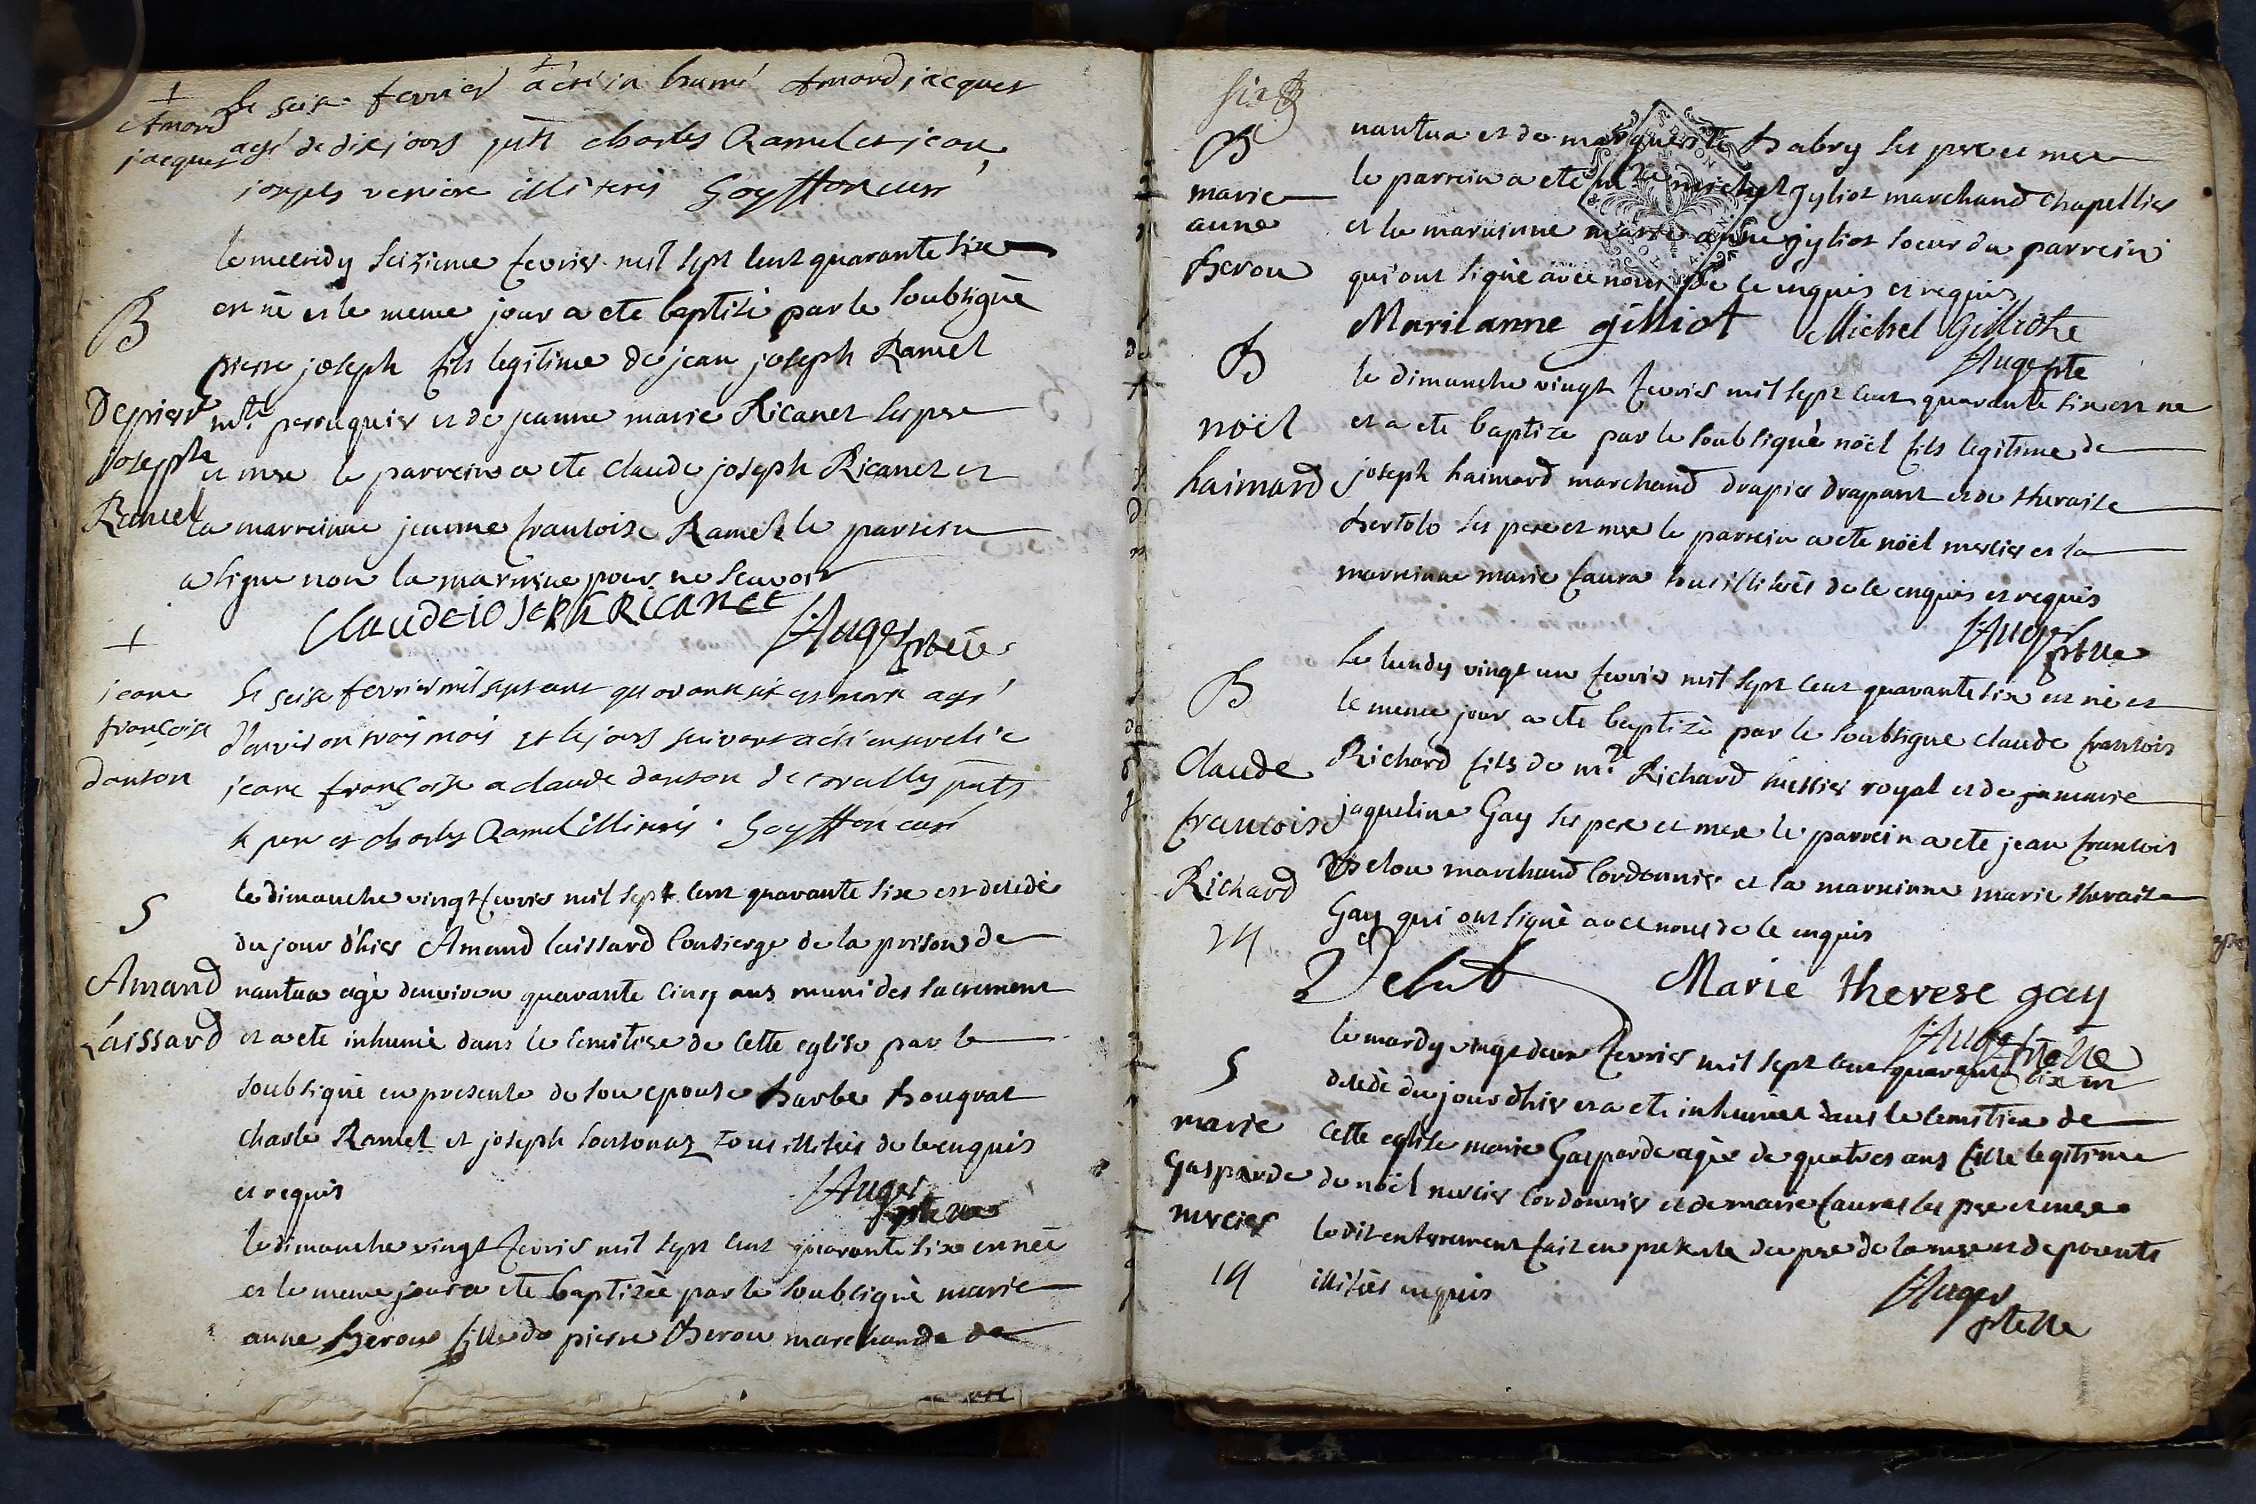 +
Amard
jacques
Le seise fevrier a été in humé Amard jacques
agé de dix jours pnts charles Ramel et jean
joseph illiterés Goyffon curé
B
De pierre
joseph
Ramel
le mecredy seizieme fevrier mil sept cent quarante six
est né et le meme jour a ete baptisé par le soubsigné
pierre joseph fils legitime de jean joseph Ramel
mtre perruquier et de jeanne marie Ricanet ses pere
et mere le parrein a ete claude joseph Ricanet et
la marreinne jeanne francoise Ramel le parrein
a signé non la marreine pour ne scavoir
CLAUDE IOSEPH RICANET
Auger ptre
+
jeane
françoise
danson
Le seise fevrier mil sept cent quarante six est morte agé
d'environ trois mois et le jour suivant a été ensevelie
jeane françoise a claude danson de pnts
le pere et charles Ramel illiterés . Goyffon curé
S
Amand
Laissard
le dimanche vingt fevrier mil sept cent quarante six est decedé
du jour d'hier Amand laissard consierge de la prison de
nantua agé denviron quarante cinq ans muni des sacrement
et a ete inhumé dans le cemitiere de cette eglise par le
soubsigné en presence de son epouse barbe bougrat
charle Ramel et joseph tous illiteres de ce enquis
et requis
Auger
le dimanche vingt fevrier mil sept cent quarante six est née
et le meme jour a ete baptizèe par le soubsignè marie
anne Berou fille de pierre Berou marchande de
B
marie
anne
Berou
nantua et de marguerite Babry ses pere et mere
le parrein a ete michel gyliot marchand chapellier
et la marreinne marie anne gyliot soeur du parrein
qui ont signè avec nous de ce enquis et requis
Mariianne gilliot Michel Gilliot
Auger ptre
B
noël
haimard
le dimanche vingt fevrier mil sept cent quarante six est ne
et a ete baptize par le soubsignè noël fils legitime de
joseph haimard marchand drapier drapant et de theraise
bertolo ses pere et mere le parrein a ete noël mercier et la
marreinne marie faura tous illiterès de ce enquis et requis
Auger
B
Claude
francois
Richard
14
Le lundy vingt un fevrier mil sept cent quarante six est nè et
le meme jour a ete baptizè par le soubsigne claude francois
Richard fils de mr Richard huissier royal et de
jaqueline Gay ses pere et mere le parrein a ete jean francois
marchand cordonnier et la marreinne marie theraise
Gay qui ont signè avec nous de ce enquis
Marie therese gay
Auger
S
marie
Gasparde
mercier
14
le mardy vingt deux fevrier mil sept cent quarante six est
decedè du jour d'hier et a ete inhumèe dans le cemitiere de
cette eglise marie Gasparde agèe de quatres ans fille legitime
de noël mercier cordonnier et de marie faura ses pere et mere
le dit enterrement fait en presence du pere de la mere et de parents
illiterès enquis
Auger